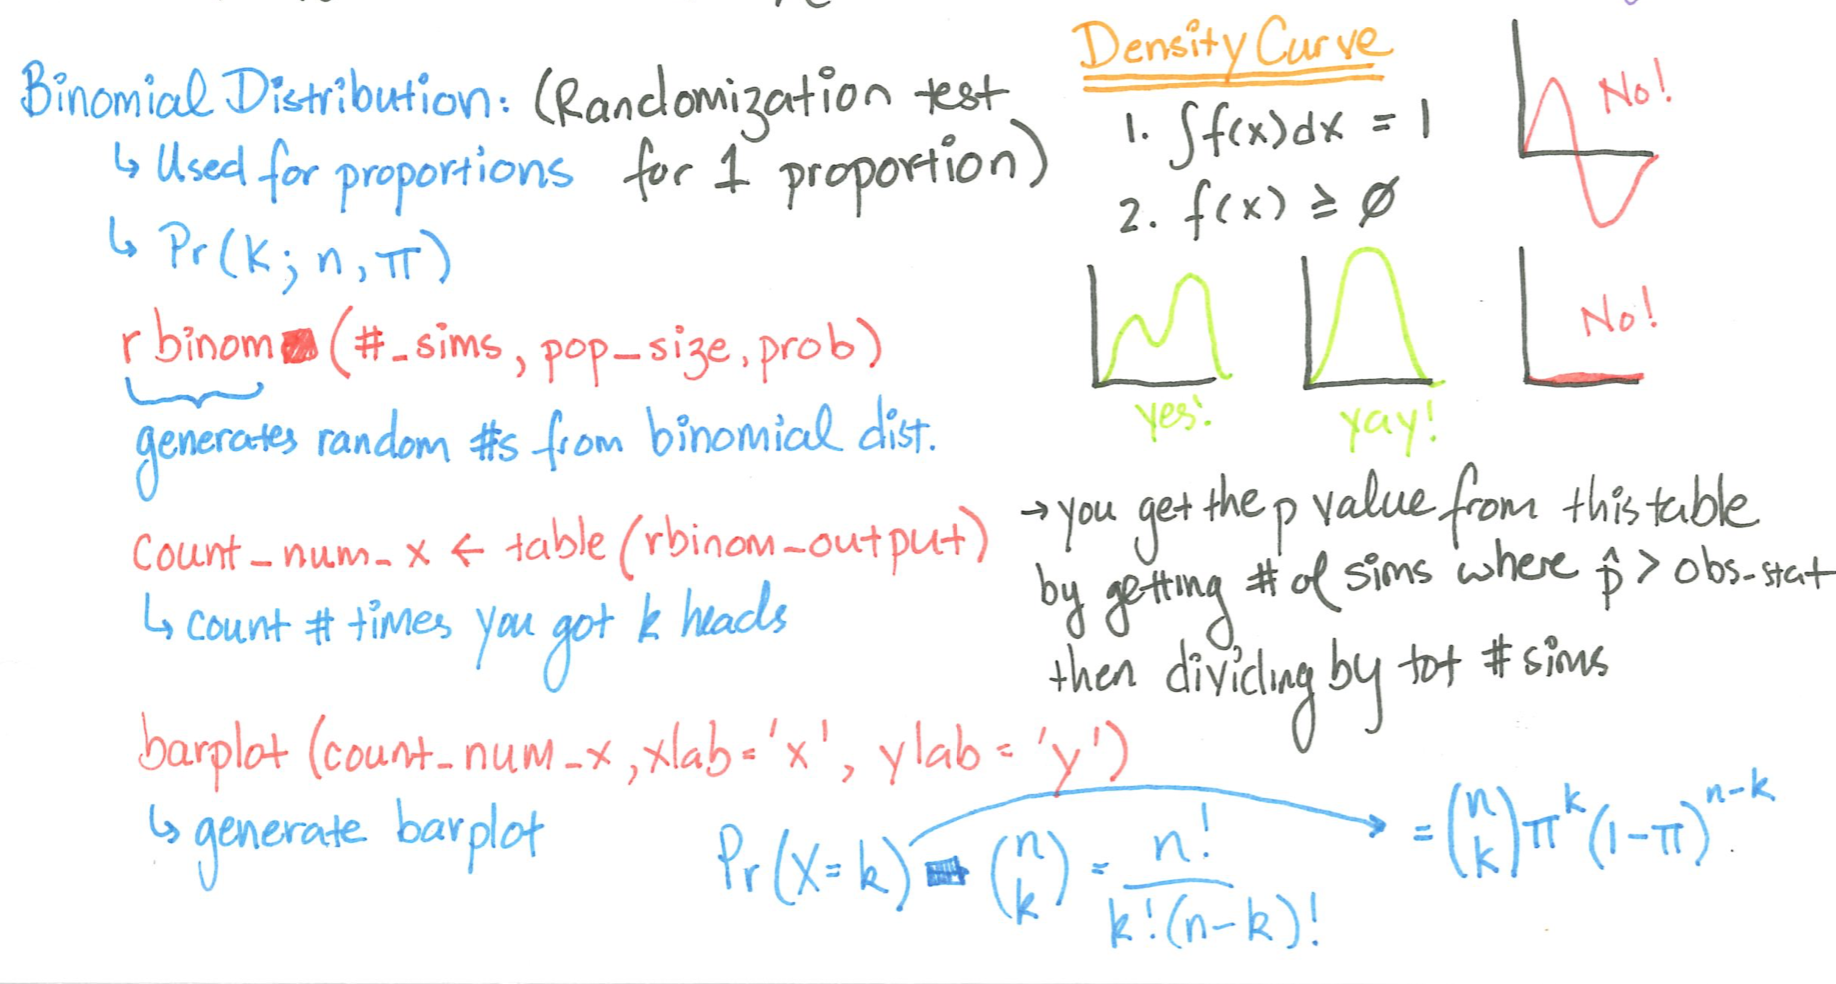 Binomial Distribution: (Randomization test
↳ Used for proportions for 1 proportion)
↳ Pr(k; n, π)
rbinom (#_sims, pop_size, prob)
generates random #s from binomial dist.
count_num_x ← table(rbinom_output)
↳ count # times you got k heads
barplot (count_num_x, xlab='x', ylab='y')
↳ generate barplot
Density Curve
1. ∫f(x)dx = 1
2. f(x) ≥ Ø
No!
yes!
yay!
No!
→ you get the p value from this table
by getting # of sims where p̂ > obs_stat
then dividing by tot # sims
Pr(X=k) = (n k)πᵏ(1-π)ⁿ⁻ᵏ
(n k) = n! / k!(n-k)!